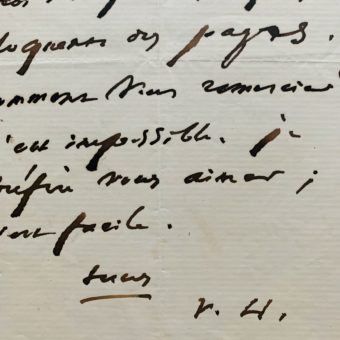 éloquentes pages.
comment vous remercier
c'est impossible. je
préfère vous aimer ;
c'est facile.
tuus
V. H.